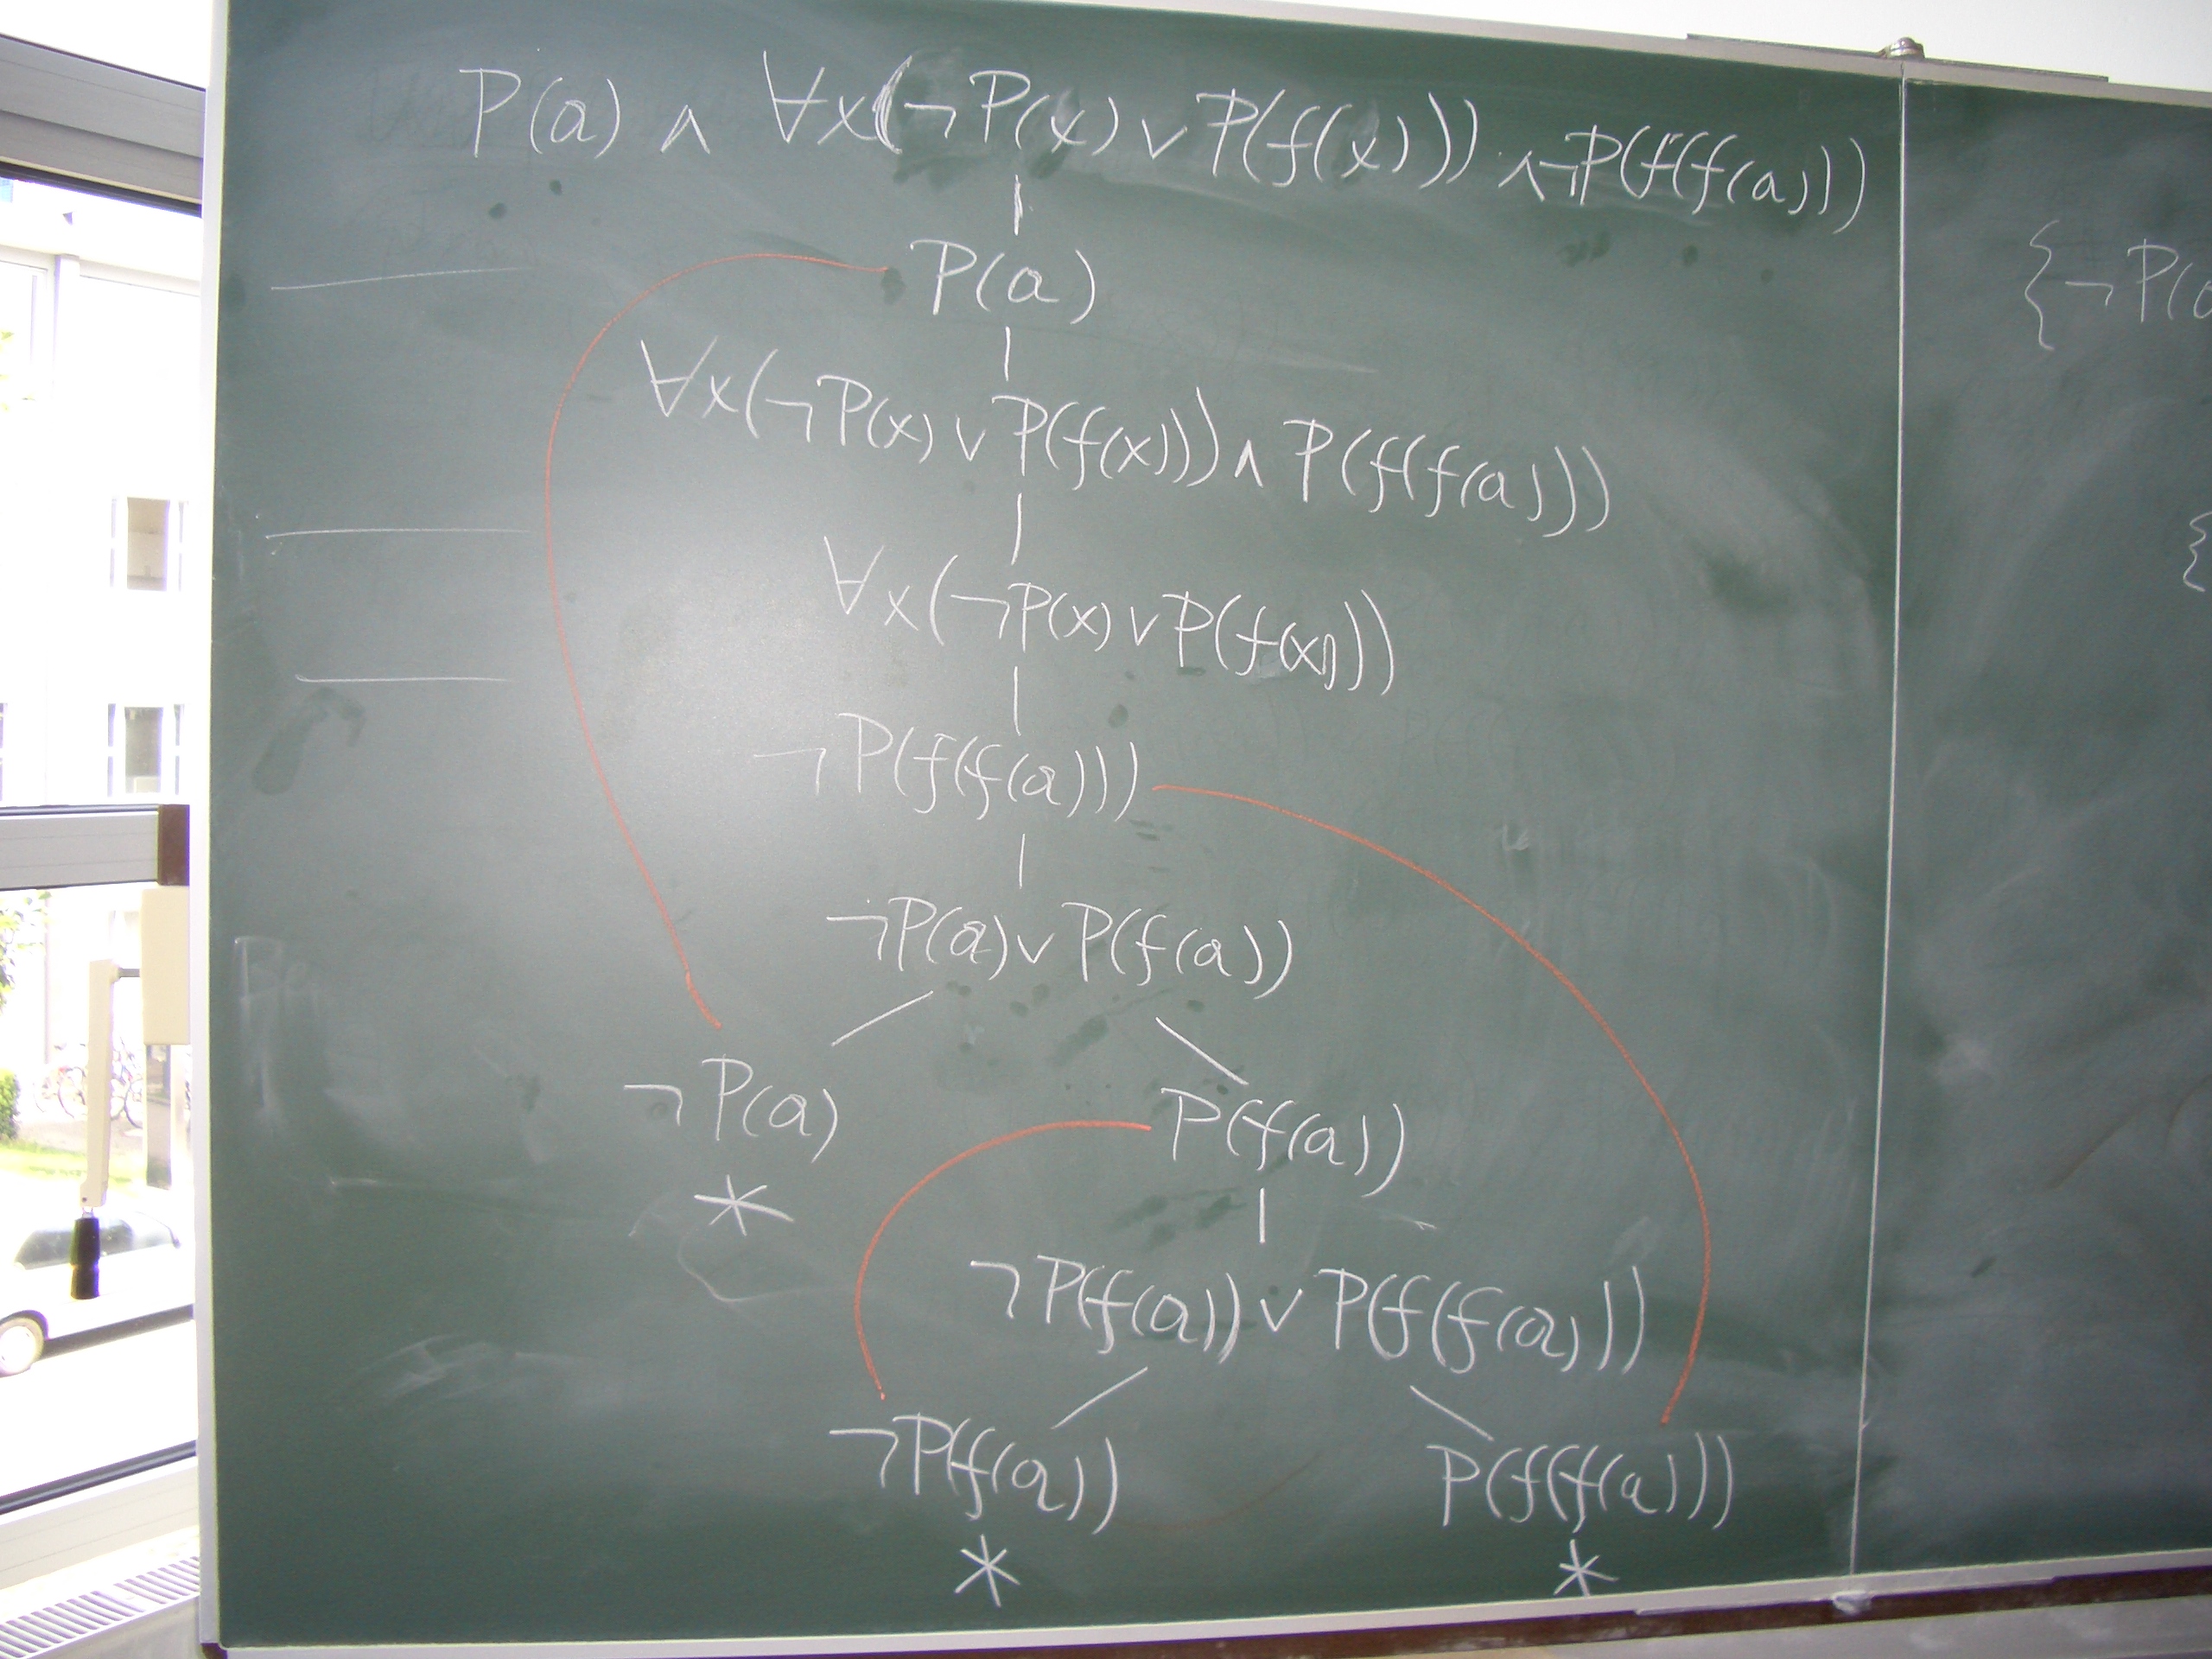 P(a) ∧ ∀x(¬P(x) ∨ P(f(x))) ∧ ¬P(f(f(a)))
P(a)
∀x(¬P(x) ∨ P(f(x))) ∧ P(f(f(a)))
∀x(¬P(x) ∨ P(f(x)))
¬P(f(f(a)))
¬P(a) ∨ P(f(a))
¬P(a) P(f(a))
*
¬P(f(a)) ∨ P(f(f(a)))
¬P(f(a)) P(f(f(a)))
* *
{¬P(
{